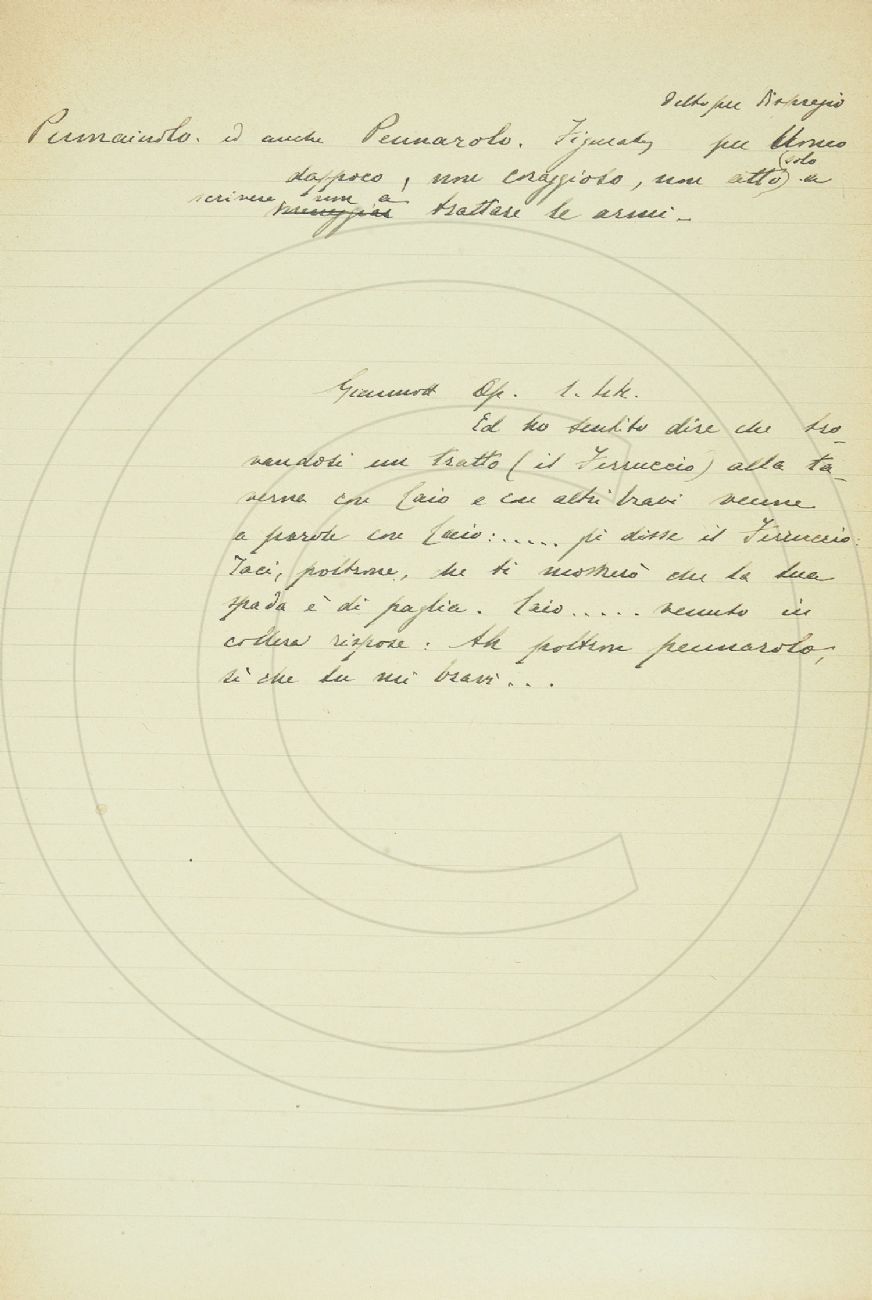 detto per dispregio
Pennaiuolo. ed anche Pennarolo. Figurato per Uomo
dappoco, non coraggioso, non atto (solo) a
scrivere non a maneggiar trattare le armi.
Giannott Op. 1.
Ed ho sentito dire che tro-
vandosi un tratto (il Ferruccio) alla ta-
verna con Caio e con altri bravi venne
a parole con Caio:..... gli disse il Ferruccio:
Taci, poltrone, che ti mosterò che la tua
spada è di paglia. Caio..... venuto in
collera rispose: Ah poltron pennarolo,
sì che tu mi bravi...